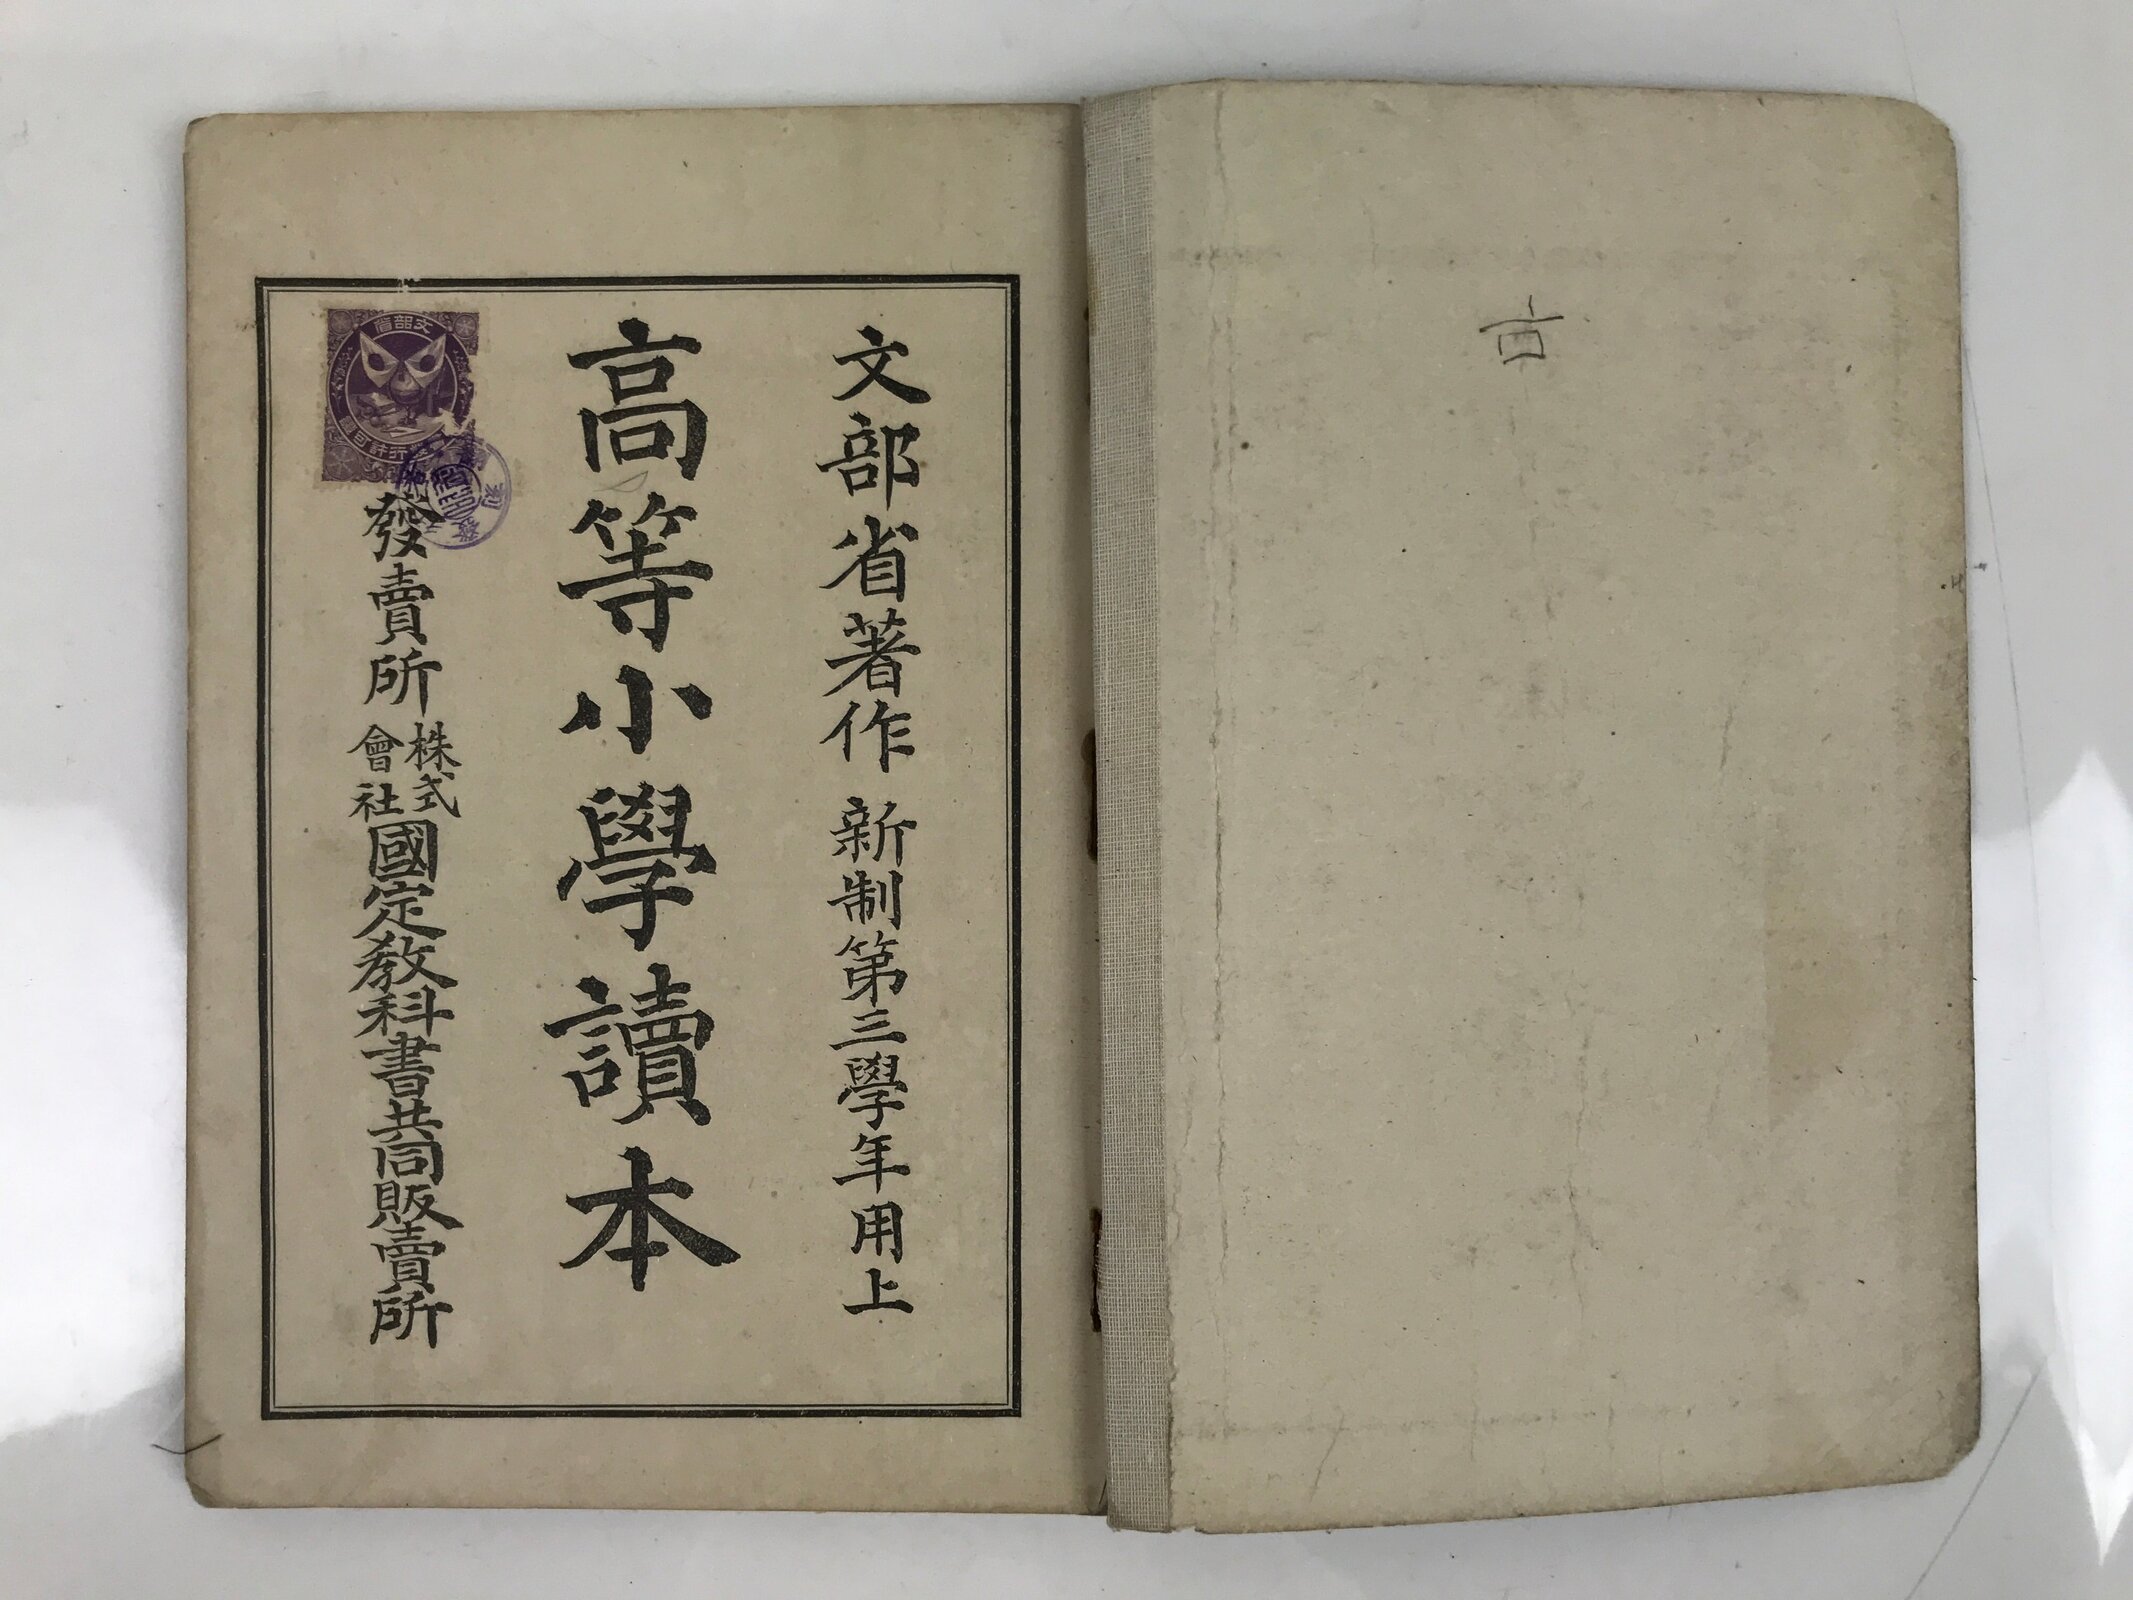 文部省著作 新制第三學年用上
高等小學讀本
發賣所 株式會社 國定教科書共同販賣所
文部省